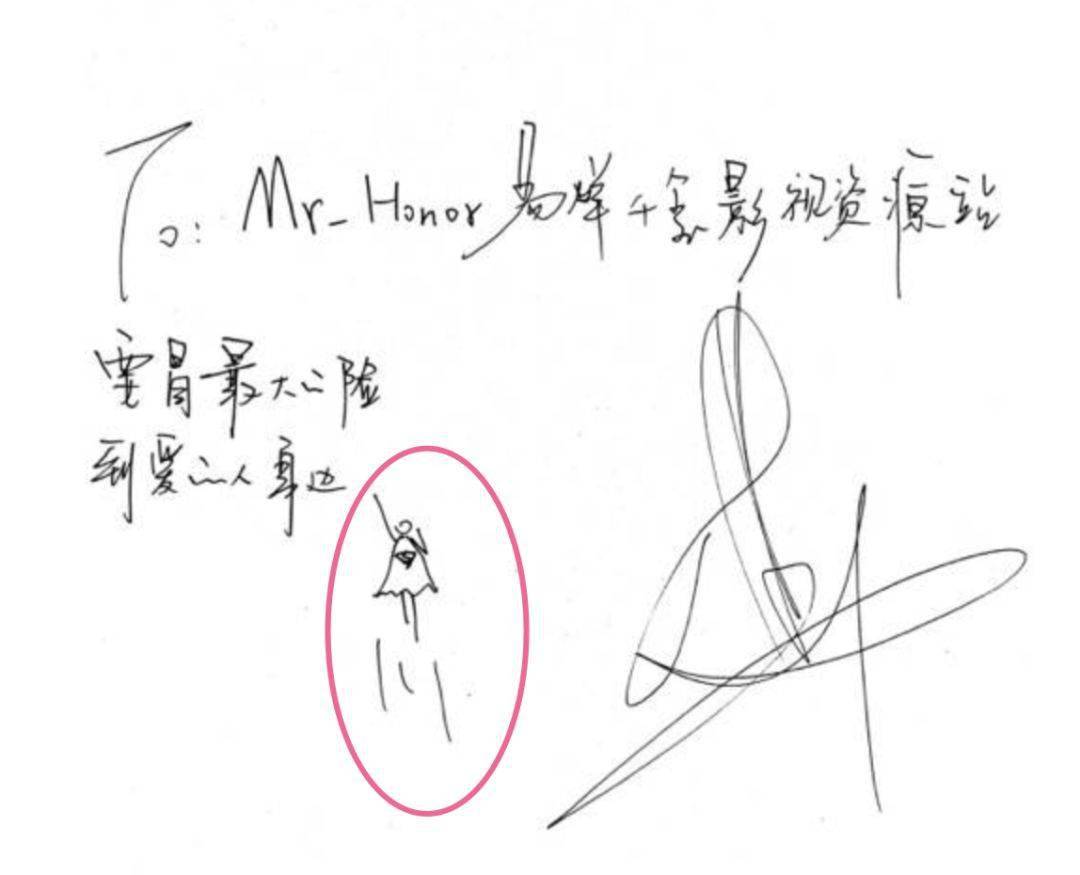 To: Mr_Honor 易烊千玺影视资源站
要冒最大的险
到爱的人身边